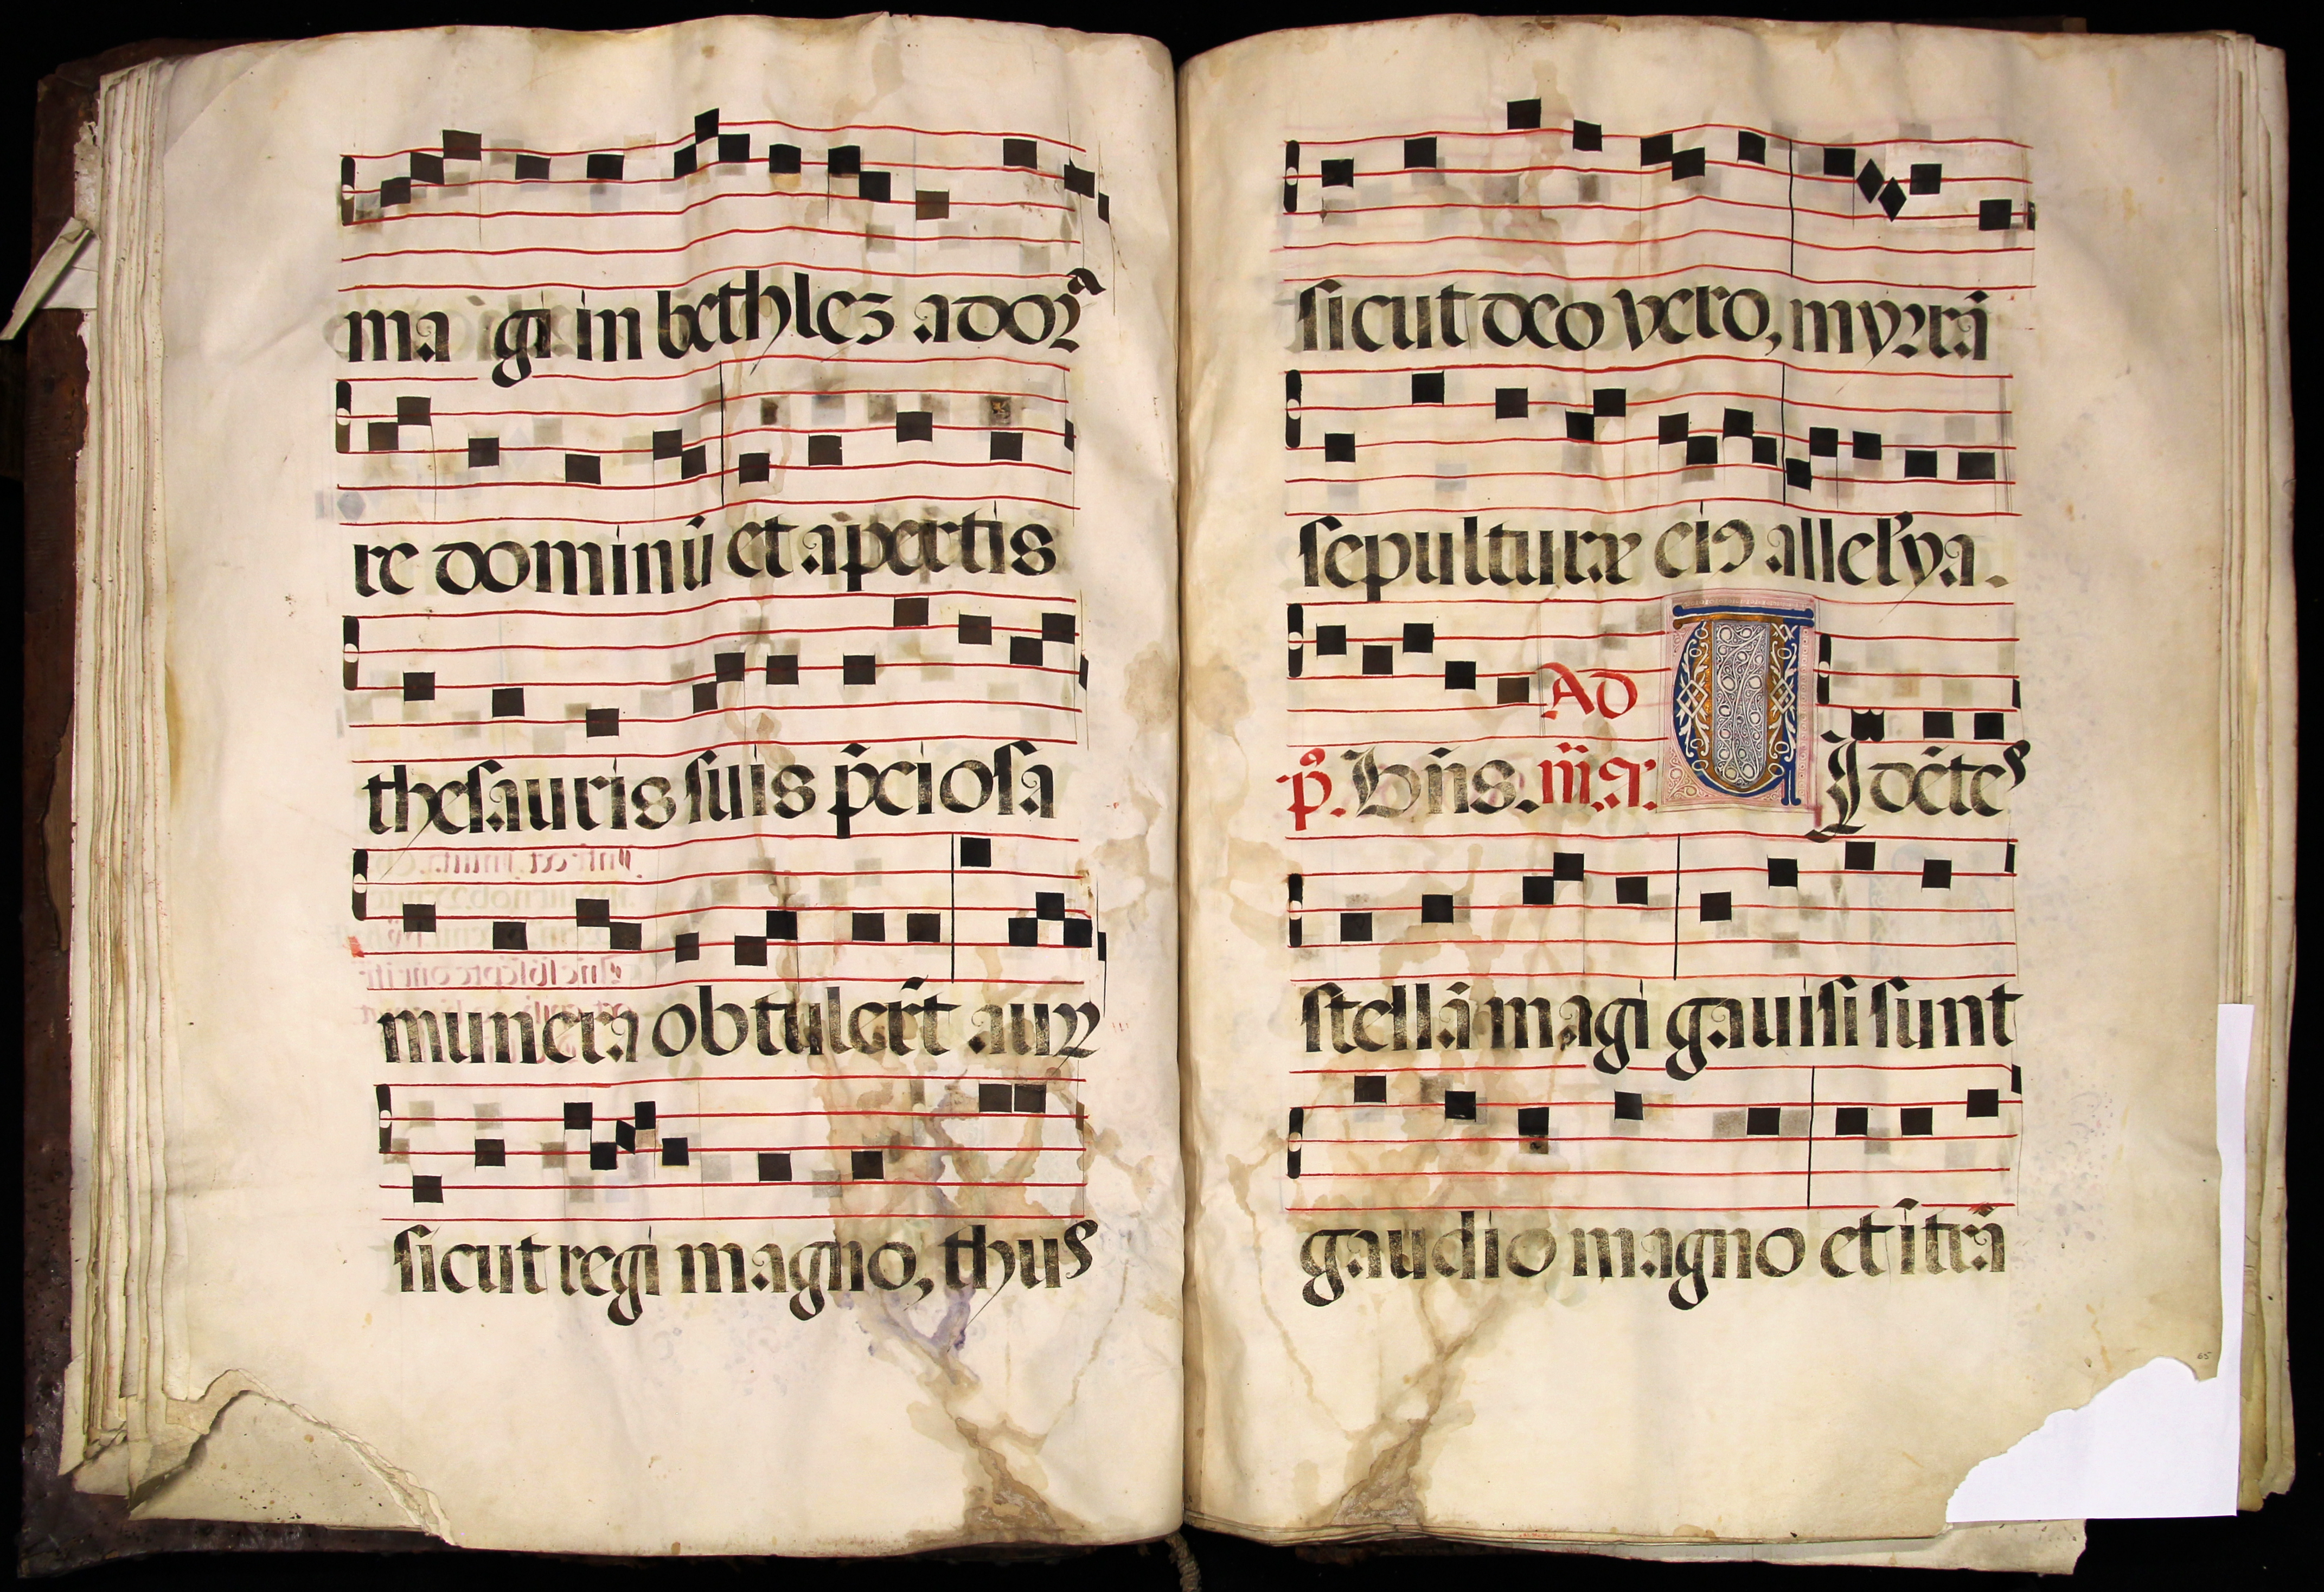 ma gi in bethleꝫ adorᷓ
re dominū et apertis
thesauris suis p̄ciosa
munera obtuler̄t auꝝ
sicut regi magno, thus
sicut deo vero, myrrā
sepulturæ eiꝰ allel'ya.
Ad
p̄. Bn̄s. iii. a. U Idētes
stellā magi gauisi sunt
gaudio magno et ītrā
65